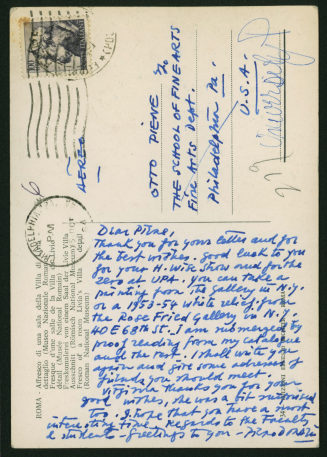 Dear Piene,
Thank you for your letter and for
the best wishes. Good luck to you
for your H. Wise show and for the
Zero at UPA. You can take a
painting from the gallery in N.Y.
or a 1953-54 white relief, from
the Rose Fried gallery in N.Y.
40 E 68th St. I am submerged by
proof reading from my catalogue
and the rest. I shall write you
again and give some adresses of
friends you should meet.
Virginia thanks you for your
good wishes, she was a bit surprised
too. I hope that you have a most
interesting time. Regards to the Faculty
& students - Greetings to you -
OTTO PIENE c/o
THE SCHOOL OF FINE ARTS
Fine Arts Dept.
Philadelphia Pa.
U.S.A.
AEREO
University
ROMA - Affresco di una sala della Villa di Livia
dettaglio (Museo Nazionale Romano)
Fresque d'une salle de la Villa de Livia
détail (Musée National Romain)
Freskomalerei von einem Saal der Livia Villa
Ausschnitt (Römisches National Museum)
Fresco of a room Livia's Villa - detail
(Roman National Museum)